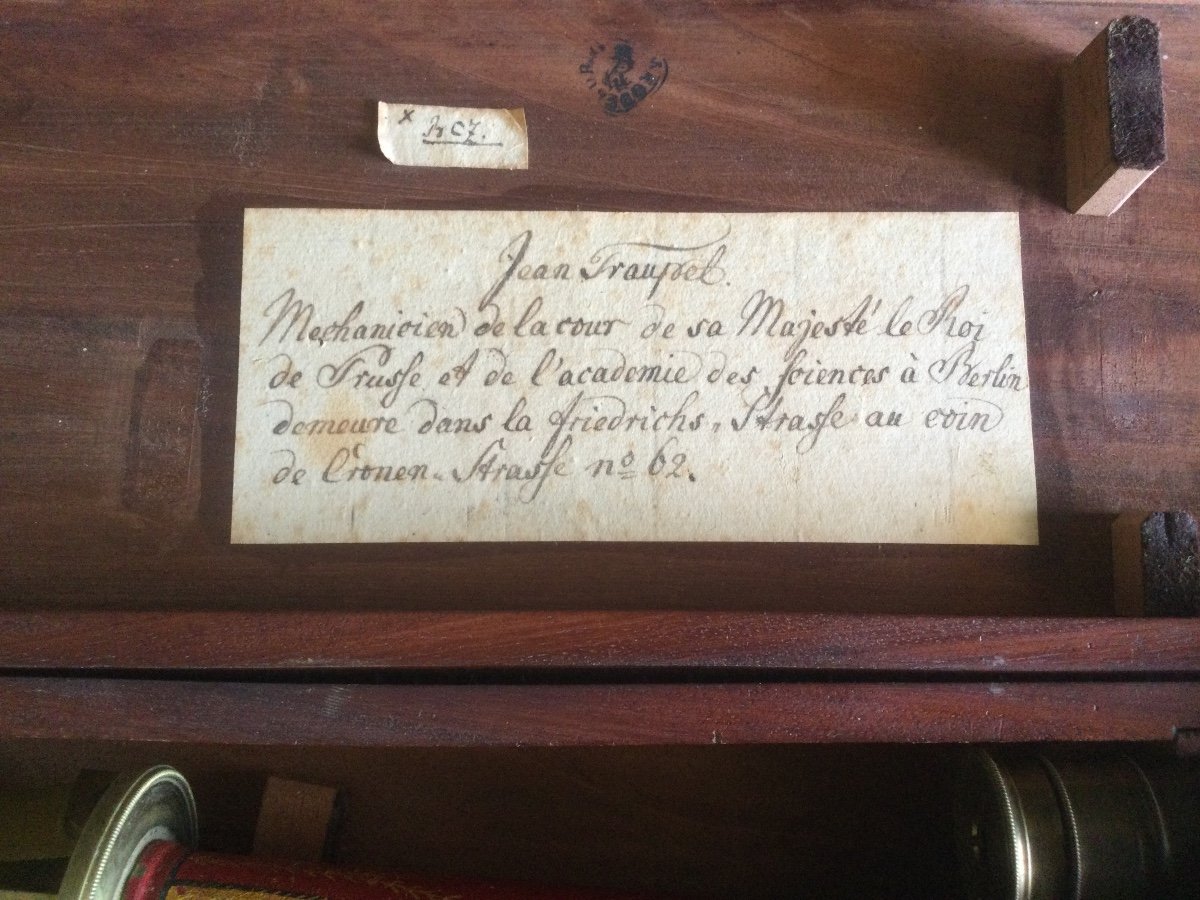 x
Jean Traupel.
Mechanicien de la cour de sa Majesté le Roi
de Prusse et de l'académie des sciences à Berlin
demeure dans la friedrichs-Strasse au coin
de Cronen-Strasse nº 62.